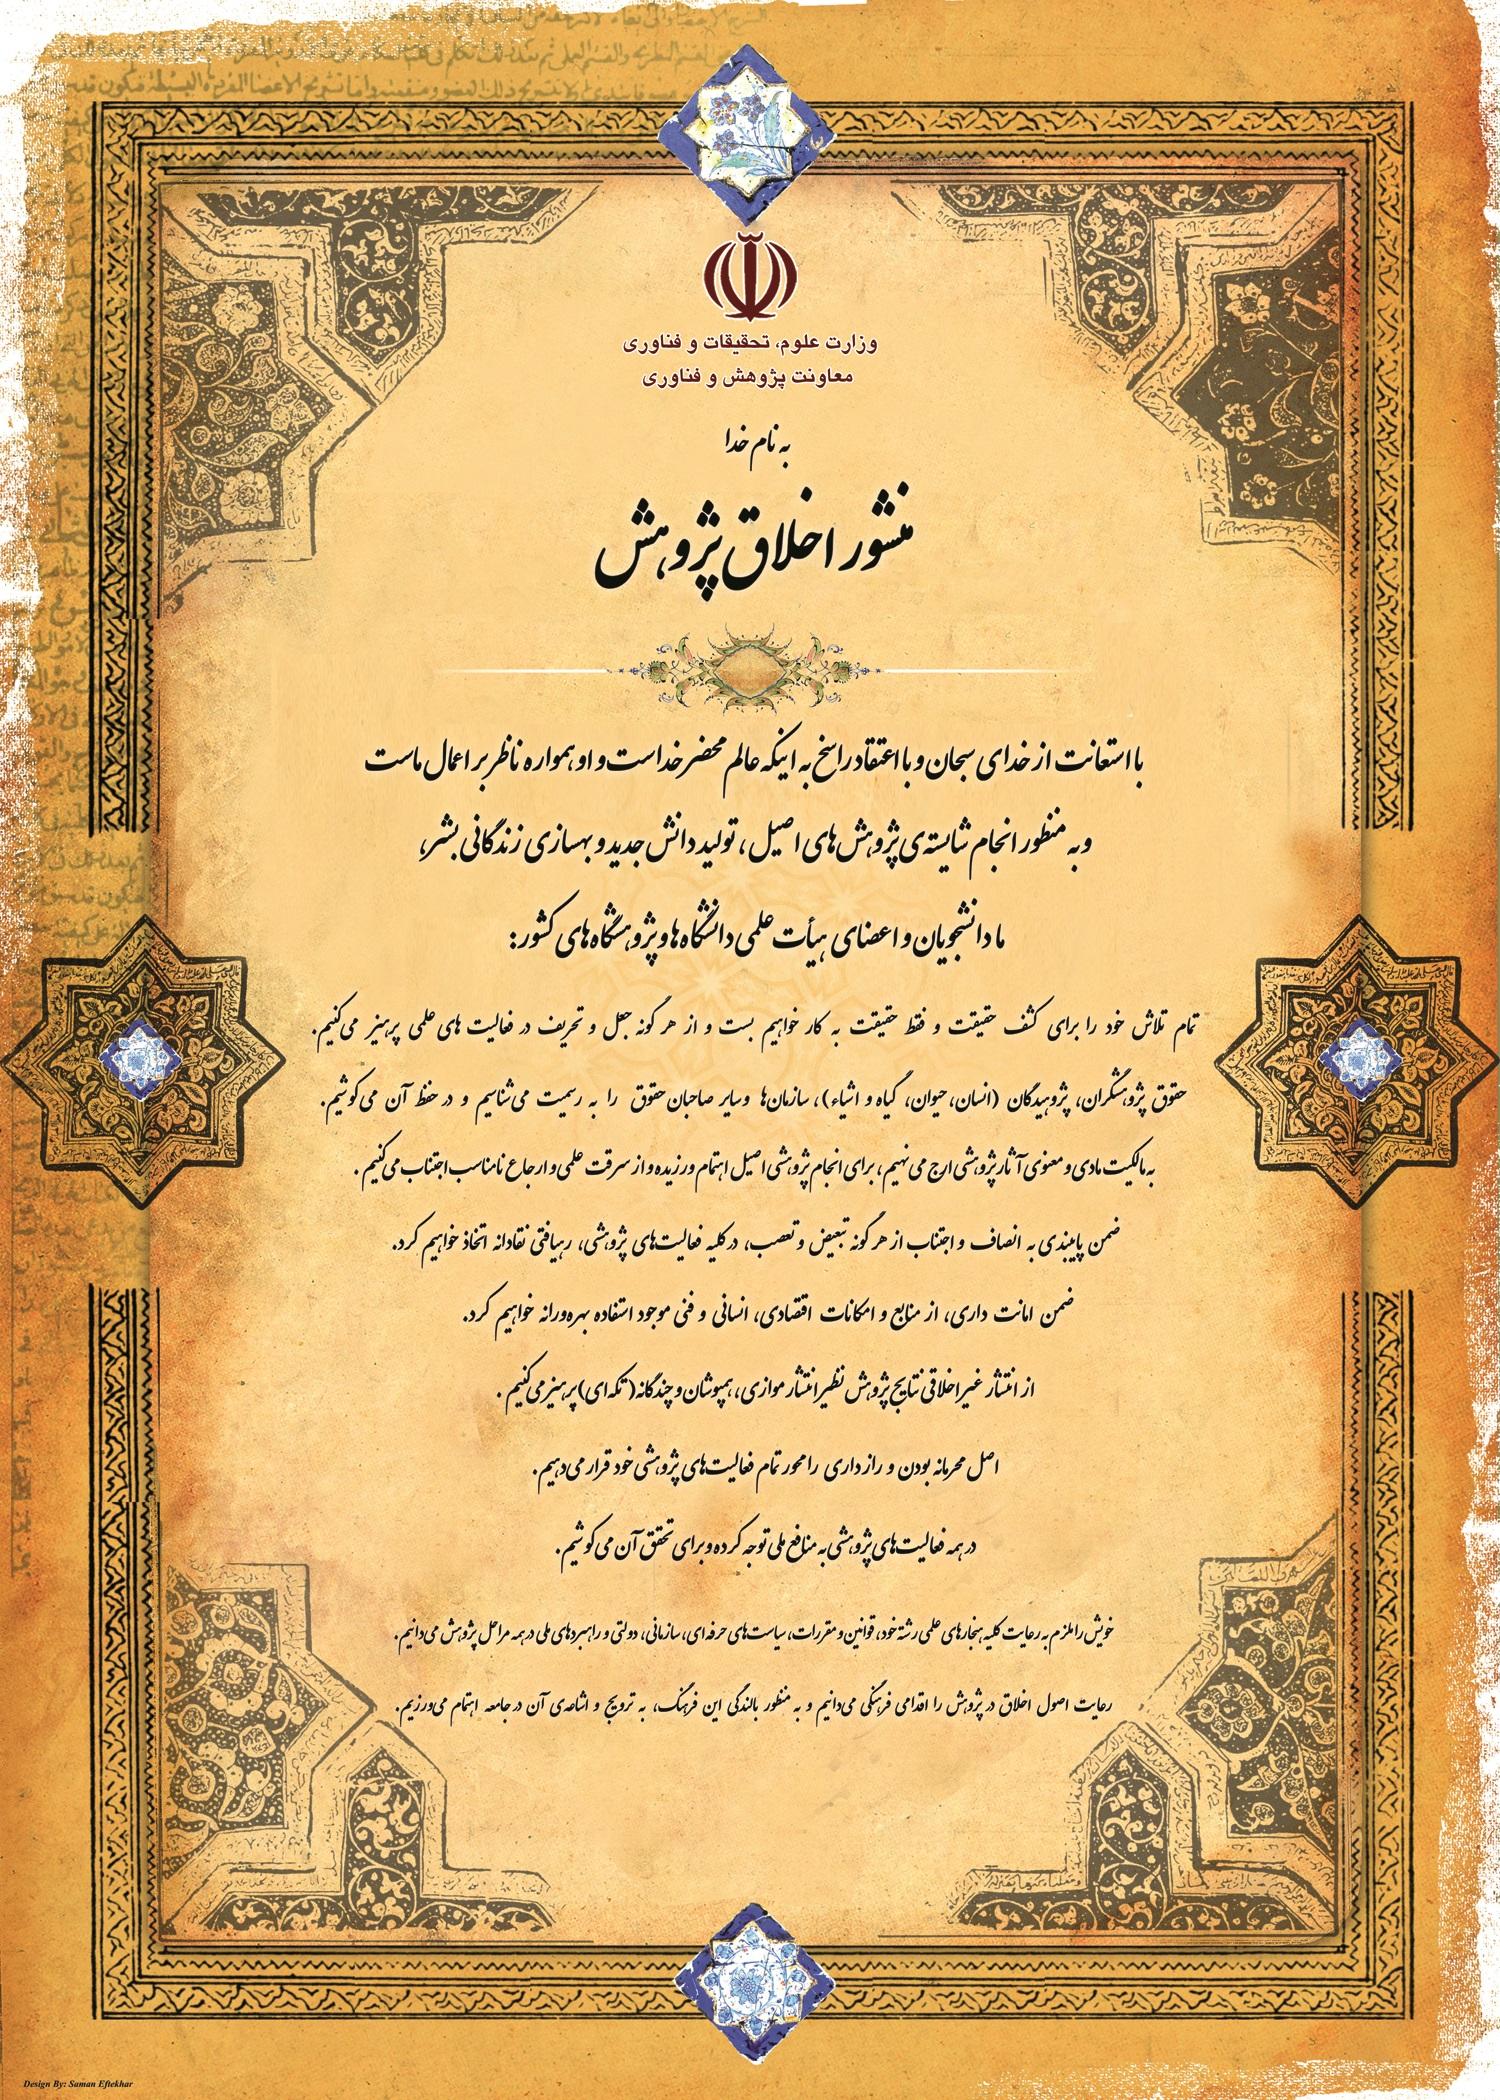 وزارت علوم، تحقیقات و فناوری
معاونت پژوهش و فناوری
به نام خدا
منشور اخلاق پژوهش
با استعانت از خدای سبحان و با اعتقاد راسخ به اینکه عالم محضر خداست و او همواره ناظر بر اعمال ماست
و به منظور انجام شایسته‌ی پژوهش‌های اصیل، تولید دانش جدید و بهسازی زندگانی بشر،
ما دانشجویان و اعضای هیأت علمی دانشگاه‌ها و پژوهشگاه‌های کشور:
تمام تلاش خود را برای کشف حقیقت و فقط حقیقت به کار خواهیم بست و از هر گونه جعل و تحریف در فعالیت های علمی پرهیز می‌کنیم.
حقوق پژوهشگران، پژوهیدگان (انسان، حیوان، گیاه و اشیاء)، سازمان‌ها و سایر صاحبان حقوق را به رسمیت می‌شناسیم و در حفظ آن می‌کوشیم.
به مالکیت مادی و معنوی آثار پژوهشی ارج می نهیم، برای انجام پژوهشی اصیل اهتمام ورزیده و از سرقت علمی و ارجاع نامناسب اجتناب می‌کنیم.
ضمن پایبندی به انصاف و اجتناب از هر گونه تبعیض و تعصب، در کلیه فعالیت‌های پژوهشی، رهیافتی نقادانه اتخاذ خواهیم کرد.
ضمن امانت داری، از منابع و امکانات اقتصادی، انسانی و فنی موجود استفاده بهره‌ورانه خواهیم کرد.
از انتشار غیراخلاقی نتایج پژوهش نظیر انتشار موازی، همپوشان و چندگانه (تکه‌ای) پرهیز می‌کنیم.
اصل محرمانه بودن و رازداری را محور تمام فعالیت‌های پژوهشی خود قرار می‌دهیم.
در همه فعالیت‌های پژوهشی به منافع ملی توجه کرده و برای تحقق آن می‌کوشیم.
خویش را ملزم به رعایت کلیه هنجارهای علمی رشته خود، قوانین و مقررات، سیاست‌های حرفه‌ای، سازمانی، دولتی و راهبردهای ملی در همه مراحل پژوهش می‌دانیم.
رعایت اصول اخلاق در پژوهش را اقدامی فرهنگی می‌دانیم و به منظور بالندگی این فرهنگ، به ترویج و اشاعه‌ی آن در جامعه اهتمام می‌ورزیم.
Design By: Saman Eftekhar